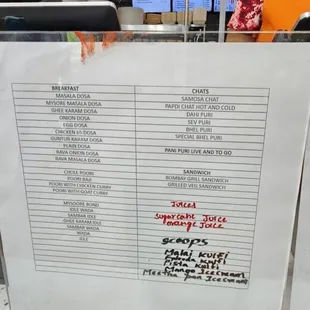 BREAKFAST CHATS
MASALA DOSA SAMOSA CHAT
MYSORE MASALA DOSA PAPDI CHAT HOT AND COLD
GHEE KARAM DOSA DAHI PURI
ONION DOSA SEV PURI
EGG DOSA BHEL PURI
CHICKEN 65 DOSA SPECIAL BHEL PURI
GUNTUR KARAM DOSA
PLAIN DOSA PANI PURI LIVE AND TO GO
RAVA ONION DOSA
RAVA MASALA DOSA
SANDWICH
CHOLE POORI BOMBAY GRILL SANDWICH
POORI BAJI GRILLED VEG SANDWICH
POORI WITH CHICKEN CURRY
POORI WITH GOAT CURRY
Juices
MYSORE BOND
IDLE WADA Sugarcane Juice
SAMBAR IDLE orange Juice
GHEE KARAM IDLE
SAMBAR WADA
WADA scoops
IDLE
Malai Kulfi
Kulfi
Pista Kulfi
Mango Icecream
Meetha Pan Icecream